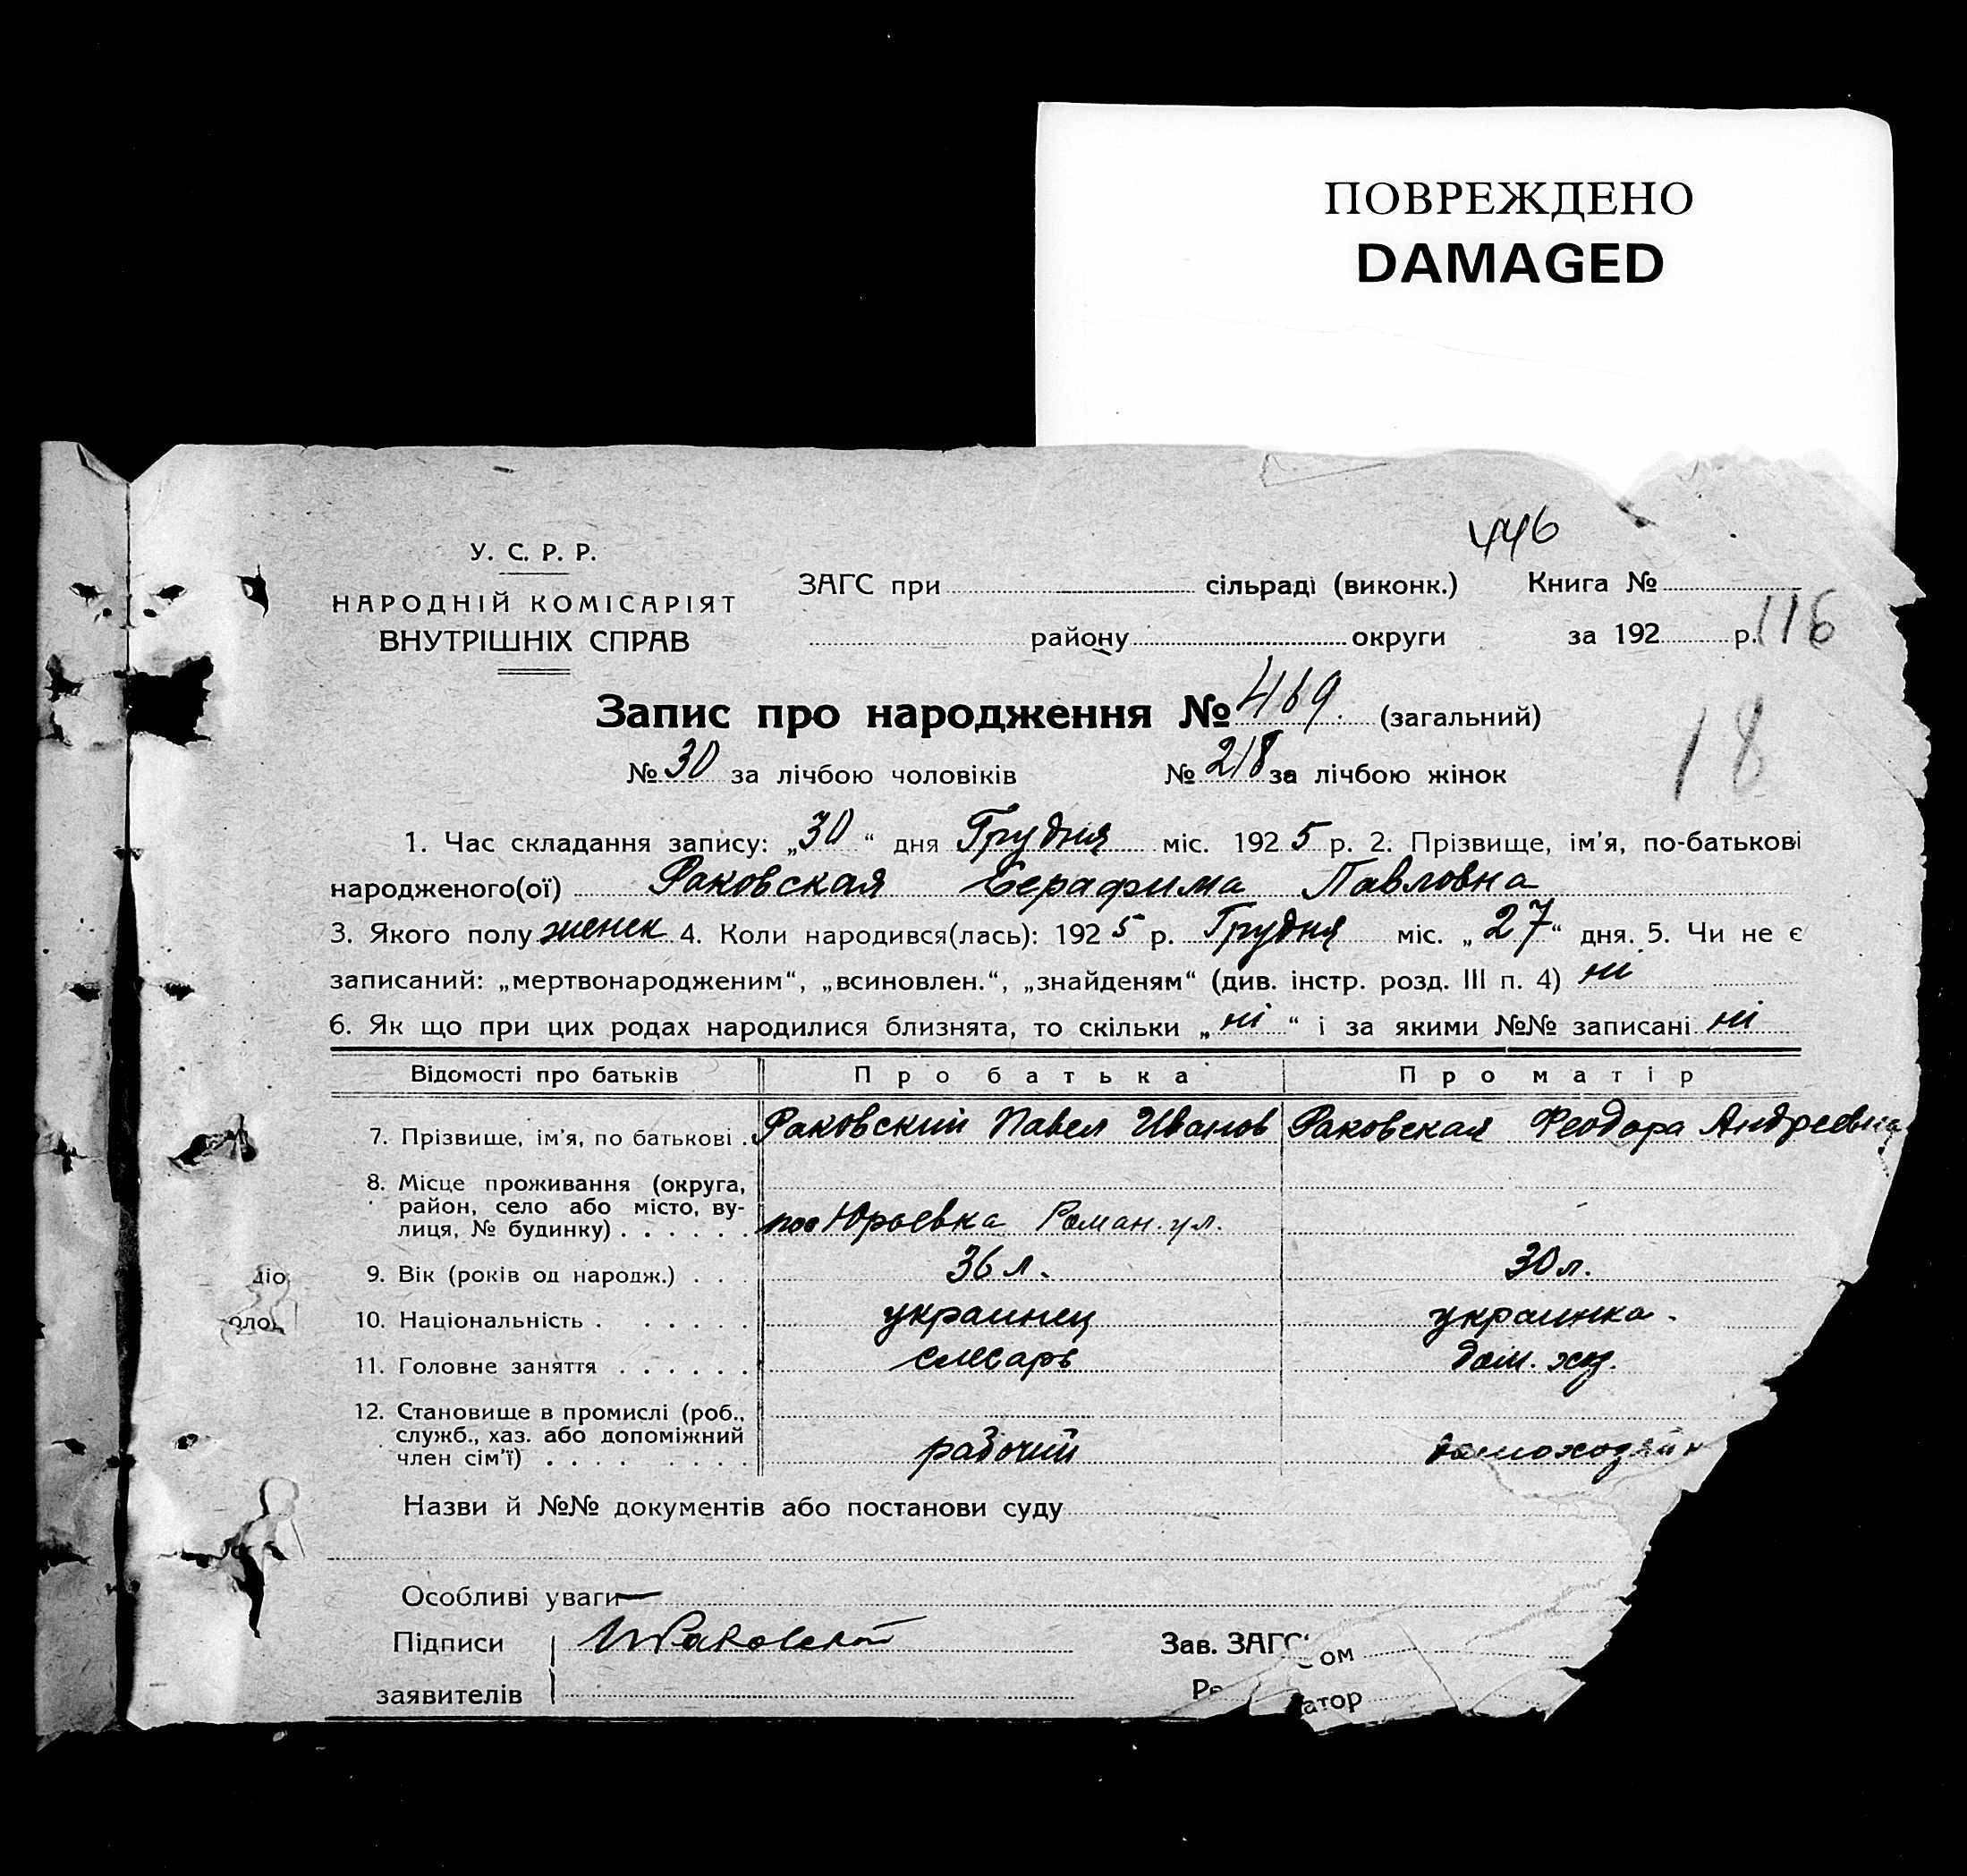 ПОВРЕЖДЕНО
DAMAGED
446
У. С. Р. Р.
НАРОДНІЙ КОМІСАРІЯТ
ВНУТРІШНІХ СПРАВ
ЗАГС при сільраді (виконк.) Книга №
району округи за 192 р. 116
Запис про народження № 469. (загальний)
№ 30 за лічбою чоловіків № 218 за лічбою жінок
18
1. Час складання запису: „30“ дня Грудня міс. 1925 р. 2. Прізвище, ім'я, по-батькові
народженого(ої) Раковская Серафима Павловна
3. Якого полу женск 4. Коли народився(лась): 1925 р. Грудня міс. „27“ дня. 5. Чи не є
записаний: „мертвонародженим“, „всиновлен.“, „знайденям“ (див. інстр. розд. III п. 4) ні
6. Як що при цих родах народилися близнята, то скільки „ні“ і за якими №№ записані ні
Відомості про батьків Про батька Про матір
7. Прізвище, ім'я, по батькові . Раковский Павел Иванов Раковская Феодора Андреевна
8. Місце проживання (округа,
район, село або місто, ву-
лиця, № будинку) . . . . . . пос Юрьевка Роман. ул.
9. Вік (років од народж.) . . . 36 л. 30 л.
10. Національність . . . . . . украинец украинка.
11. Головне заняття . . . . . . слесарь дом. хоз.
12. Становище в промислі (роб.,
служб., хаз. або допоміжний
член сім'ї) . . . . . . . . рабочий домохозяйк
Назви й №№ документів або постанови суду
Особливі уваги —
Підписи Раковский Зав. ЗАГС'ом
заявителів Ре атор
діо
олоц